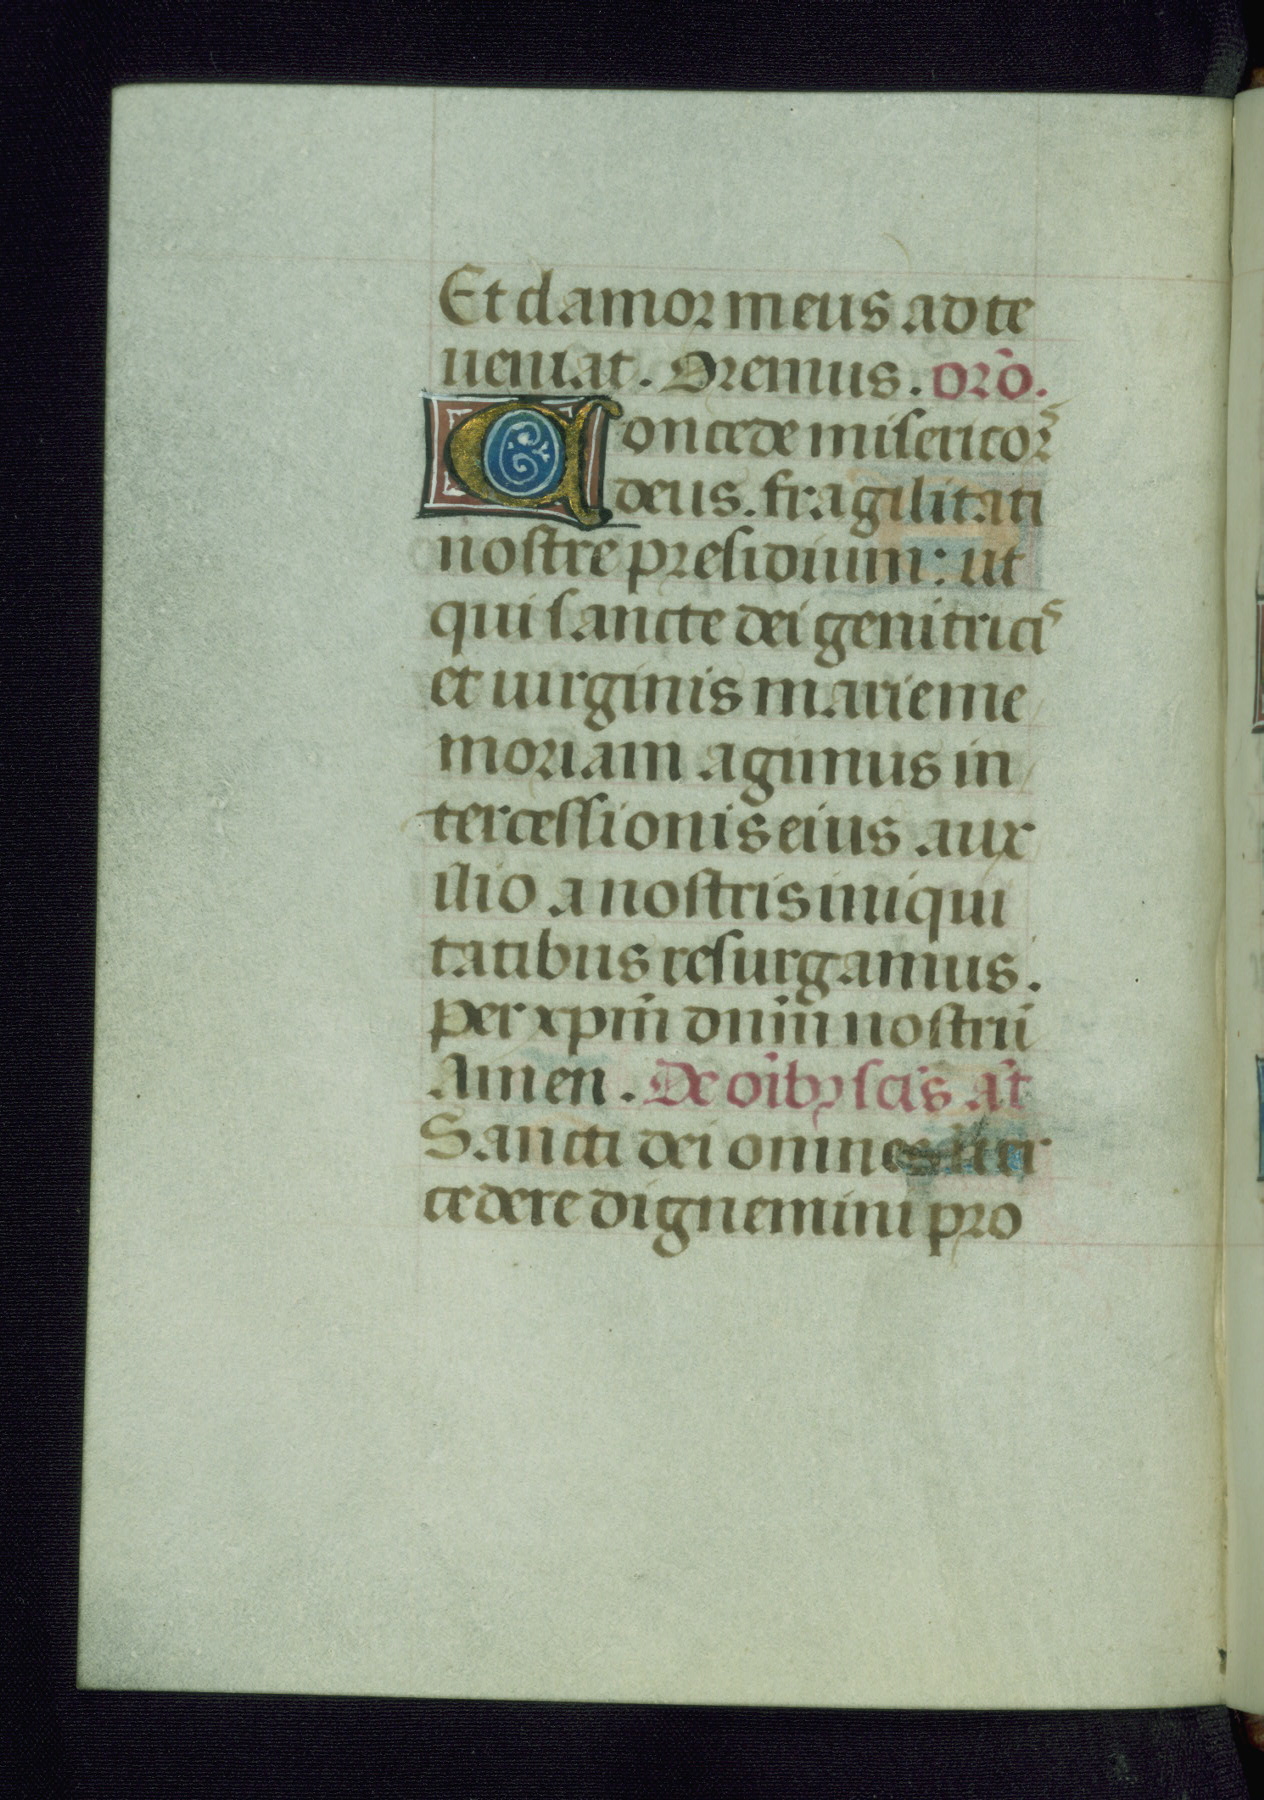 Et clamor meus ad te
ueniat. Oremus. orō.
Concede misericorˢ
deus. fragilitati
nostre presidium: ut
qui sancte dei genitriciˢ
et uirginis marie me
moriam agimus in
tercessionis eius aux
ilio a nostris iniqui
tatibus resurgamus.
Per xp̄m dn̄m nostrū
Amen. De oīb₉ scīs an̄
Sancti dei omnes inter
cedere dignemini pro